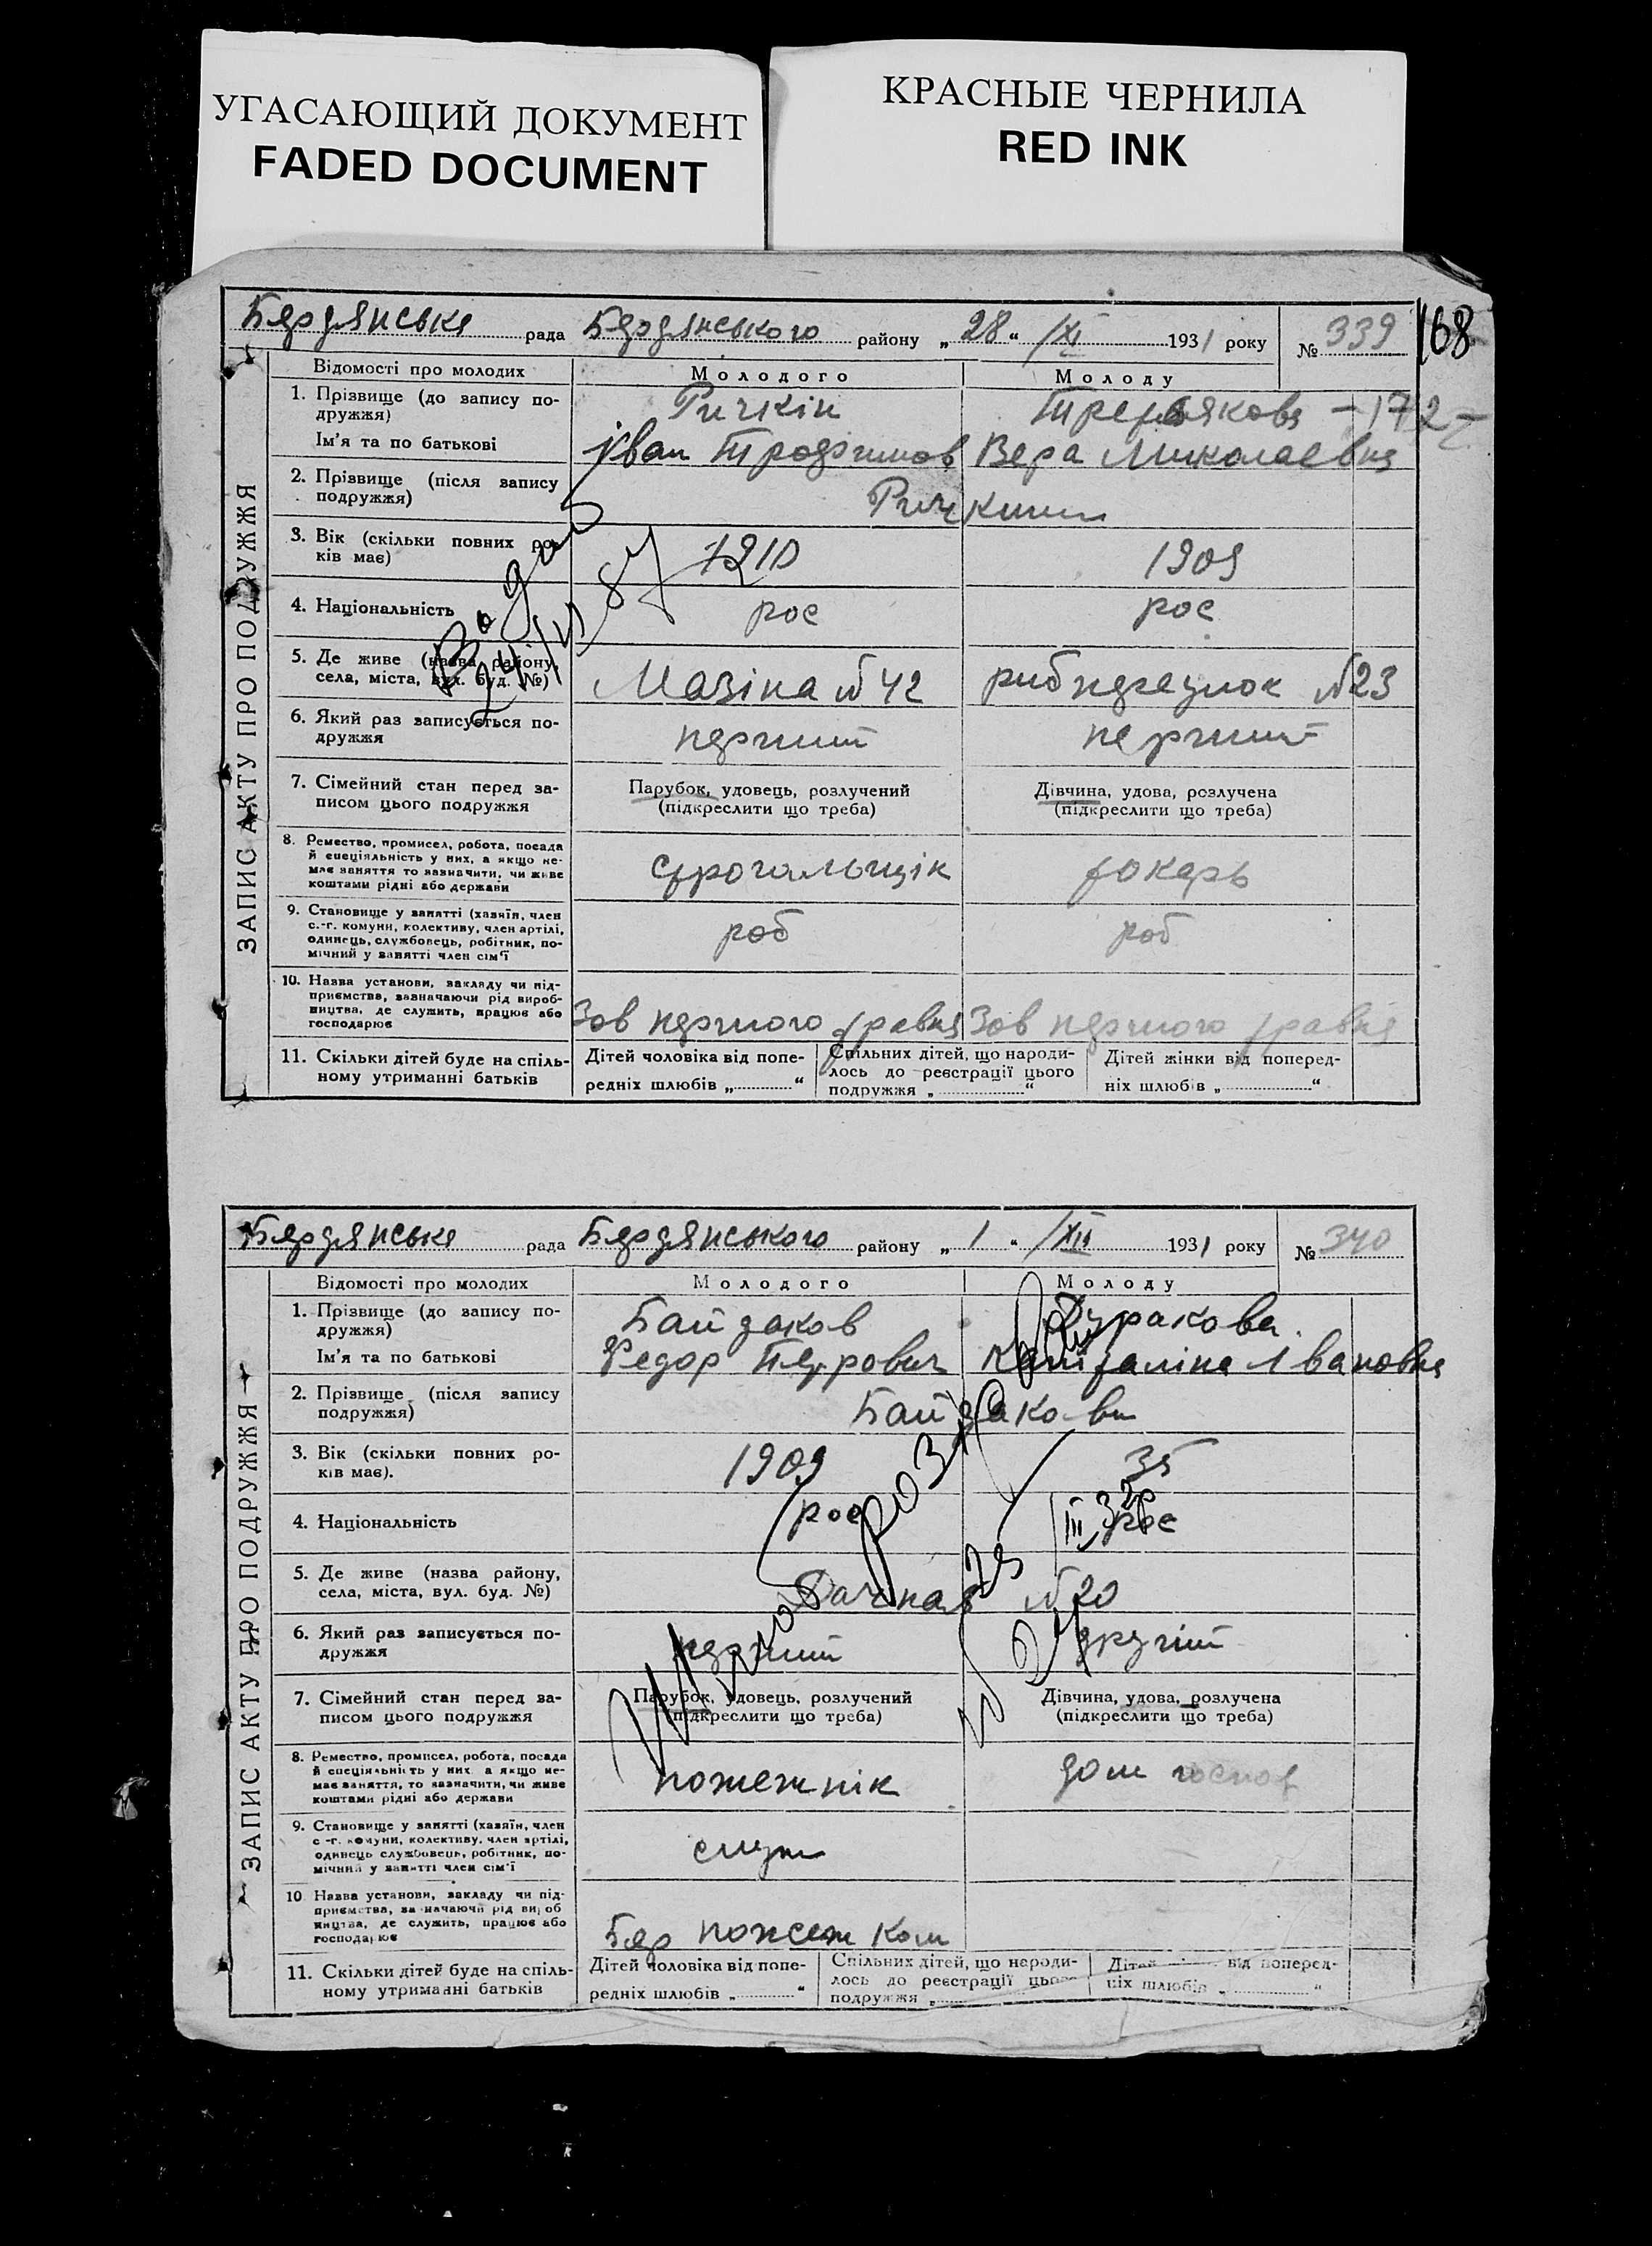 УГАСАЮЩИЙ ДОКУМЕНТ
FADED DOCUMENT
КРАСНЫЕ ЧЕРНИЛА
RED INK
168
ЗАПИС АКТУ ПРО ПОДРУЖЖЯ
Бердянська рада Бердянського району „ 28 “ /XI 1931 року № 339
Відомості про молодих Молодого Молоду
1. Прізвище (до запису по- Ричкін Третьякова - 172 -
дружжя)
Ім'я та по батькові Іван Трофимов Вера Миколаевна
2. Прізвище (після запису
подружжя) Ричкини
3. Вік (скільки повних ро- 1910 1909
ків має)
4. Національність рос рос
5. Де живе (назва району,
села, міста, вул. буд. №) Мазіна №42 №23
6. Який раз записується по- перший перший
дружжя
7. Сімейний стан перед за- Парубок, удовець, розлучений Дівчина, удова, розлучена
писом цього подружжя (підкреслити що треба) (підкреслити що треба)
8. Ремество, промисел, робота, посада
й спеціяльність у них, а якщо не-
має заняття то зазначити, чи живе строгальщік токарь
коштами рідні або держави
9. Становище у занятті (хазяїн, член
с.-г. комуни, колективу, член артілі, роб роб
одинець, службовець, робітник, по-
мічний у занятті член сім'ї
10. Назва установи, закладу чи під-
приємства, зазначаючи рід вироб-
ництва, де служить, працює або Зов першого травня Зов першого травня
господарює
11. Скільки дітей буде на спіль- Дітей чоловіка від попе- Спільних дітей, що народи- Дітей жінки від поперед-
ному утриманні батьків редніх шлюбів „ “ лось до реєстрації цього ніх шлюбів „ “
подружжя „ “
ЗАПИС АКТУ ПРО ПОДРУЖЖЯ
Бердянська рада Бердянського району „ 1 “ /XII 1931 року № 340
Відомості про молодих Молодого Молоду
1. Прізвище (до запису по- Байдаков Дуракова
дружжя)
Ім'я та по батькові Федор Петрович Капіталіна Івановна
2. Прізвище (після запису Байдакови
подружжя)
3. Вік (скільки повних ро- 1909 35
ків має).
4. Національність рос рос
5. Де живе (назва району,
села, міста, вул. буд. №) Дачная №20
6. Який раз записується по- перший другій
дружжя
7. Сімейний стан перед за- Парубок, удовець, розлучений Дівчина, удова, розлучена
писом цього подружжя (підкреслити що треба) (підкреслити що треба)
8. Ремество, промисел, робота, посада
й спеціяльність у них а якщо не-
має заняття, то зазначити, чи живе пожежнік дом госпо
коштами рідні або держави
9. Становище у занятті (хазяїн, член
с-г. комуни, колективу, член артілі,
одинець службовець, робітник, по- служ
мічний у занятті член сім'ї
10 Назва установи, закладу чи під-
приємства, зазначаючи рід вироб
ництва, де служить, працює або Бер пожеж ком
господарює
11. Скільки дітей буде на спіль- Дітей чоловіка від попе- Спільних дітей, що народи- Дітей від поперед-
ному утриманні батьків редніх шлюбів „ “ лось до реєстрації цього ніх шлюбів „ “
подружжя „